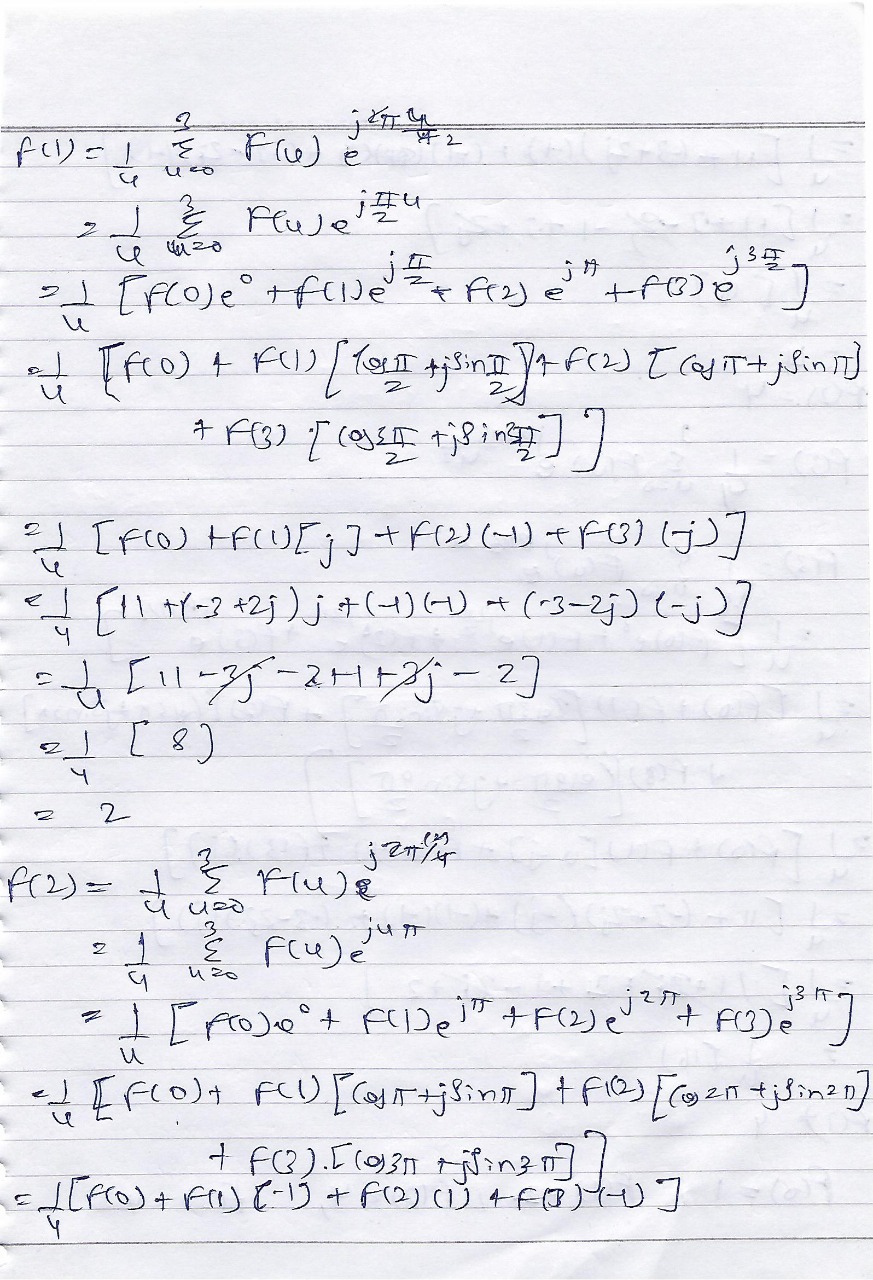 f(1) = 1/4 Σ_{u=0}^{3} F(u) e^{j2π u/4 2}
= 1/4 Σ_{u=0}^{3} F(u) e^{j π/2 u}
= 1/4 [F(0)e^0 + F(1)e^{j π/2} + F(2) e^{jπ} + F(3) e^{j3π/2}]
= 1/4 [F(0) + F(1) [cos π/2 + jSin π/2] + F(2) [cos π + jSin π]
+ F(3) · [cos 3π/2 + jSin 3π/2] ]
= 1/4 [F(0) + F(1)[j] + F(2)(-1) + F(3)(-j)]
= 1/4 [11 + (-3+2j)j + (-1)(-1) + (-3-2j)(-j)]
= 1/4 [11 - 3j - 2 + 1 + 3j - 2]
= 1/4 [8]
= 2
f(2) = 1/4 Σ_{u=0}^{3} F(u) e^{j2π(2)/4}
= 1/4 Σ_{u=0}^{3} F(u) e^{juπ}
= 1/4 [F(0)e^0 + F(1)e^{jπ} + F(2)e^{j2π} + F(3)e^{j3π}]
= 1/4 [F(0) + F(1) [cos π + jSin π] + F(2) [cos 2π + jSin 2π]
+ F(3) · [cos 3π + jSin 3π] ]
= 1/4 [F(0) + F(1) [-1] + F(2)(1) + F(3)(-1)]